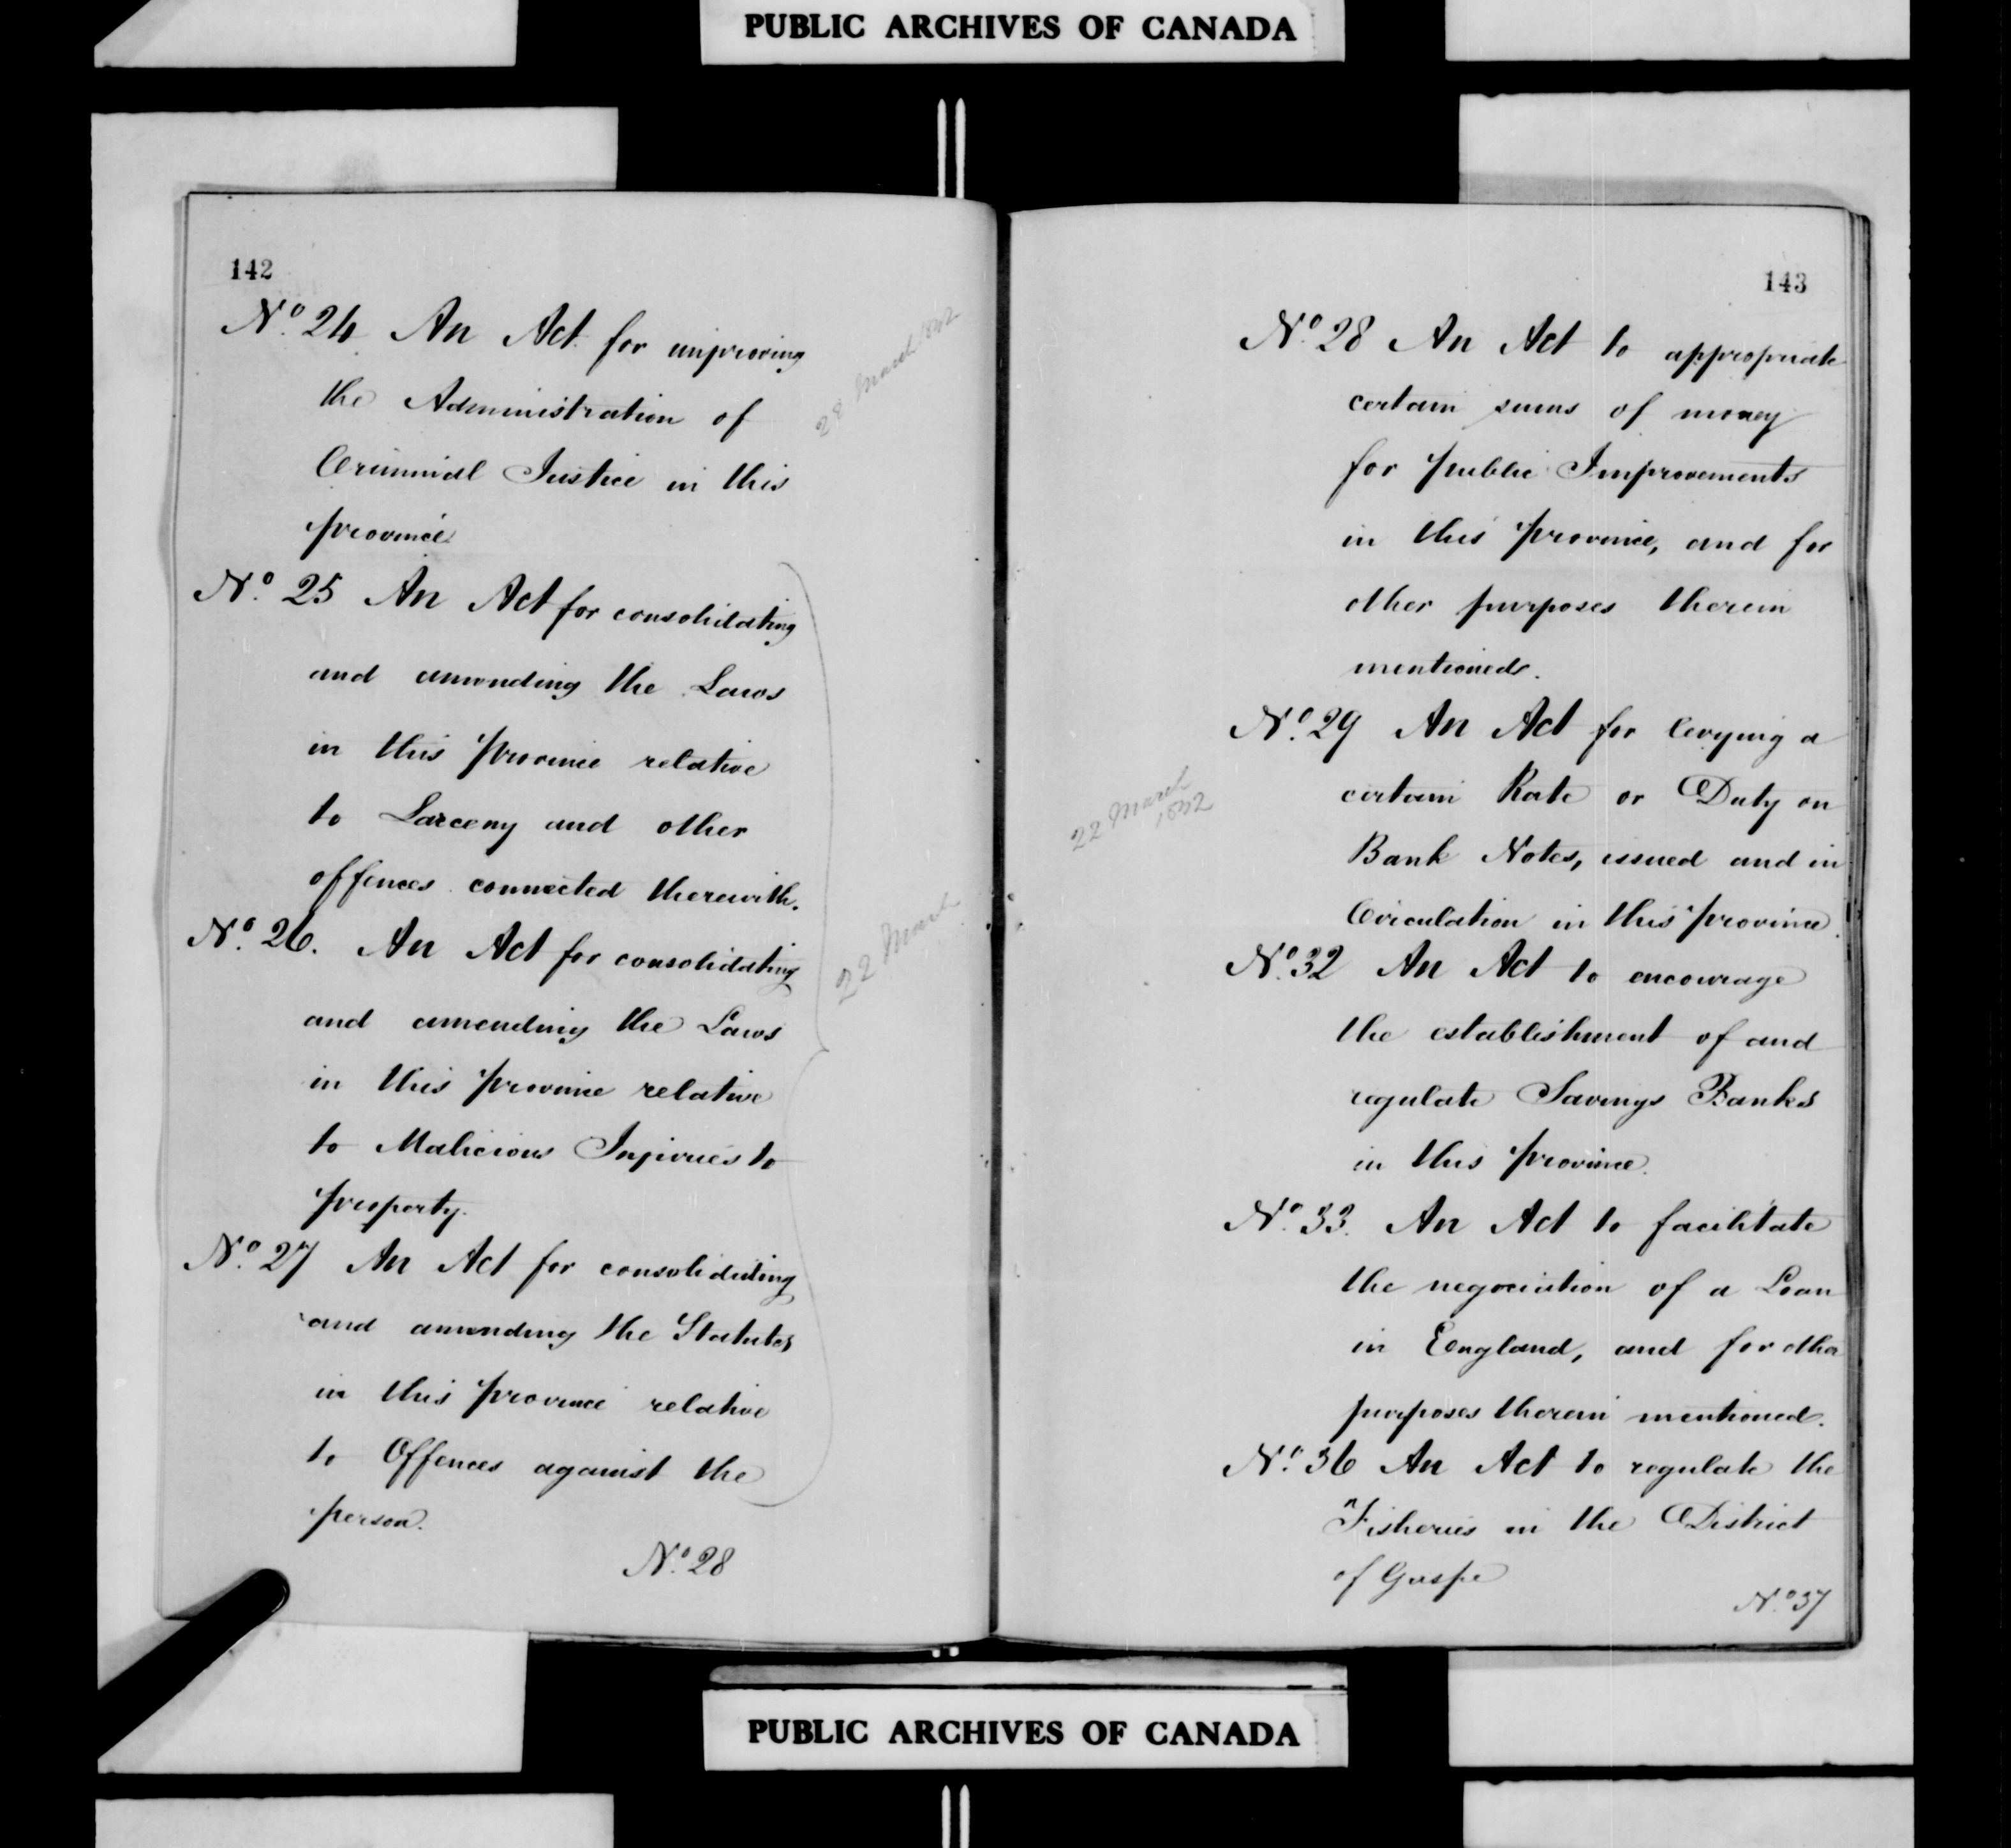 PUBLIC ARCHIVES OF CANADA
142
No. 24 An Act for improving
the Administration of
Criminal Justice in this
province
28 March 1842
No. 25 An Act for consolidating
and amending the Laws
in this province relative
to Larceny and other
offences connected therewith.
No. 26. An Act for consolidating
and amending the Laws
in this province relative
to Malicious Injuries to
property.
22 March
No. 27 An Act for consolidating
and amending the Statutes
in this province relative
to Offences against the
person.
No. 28
143
No. 28 An Act to appropriate
certain sums of money
for public Improvements
in this province, and for
other purposes therein
mentioned.
No. 29 An Act for levying a
certain Rate or Duty on
Bank Notes, issued and in
Circulation in this province.
22 March
1842
No. 32 An Act to encourage
the establishment of and
regulate Savings Banks
in this province.
No. 33. An Act to facilitate
the negociation of a Loan
in England, and for other
purposes therein mentioned.
No. 36 An Act to regulate the
Fisheries in the District
of Gaspe
No. 37
PUBLIC ARCHIVES OF CANADA